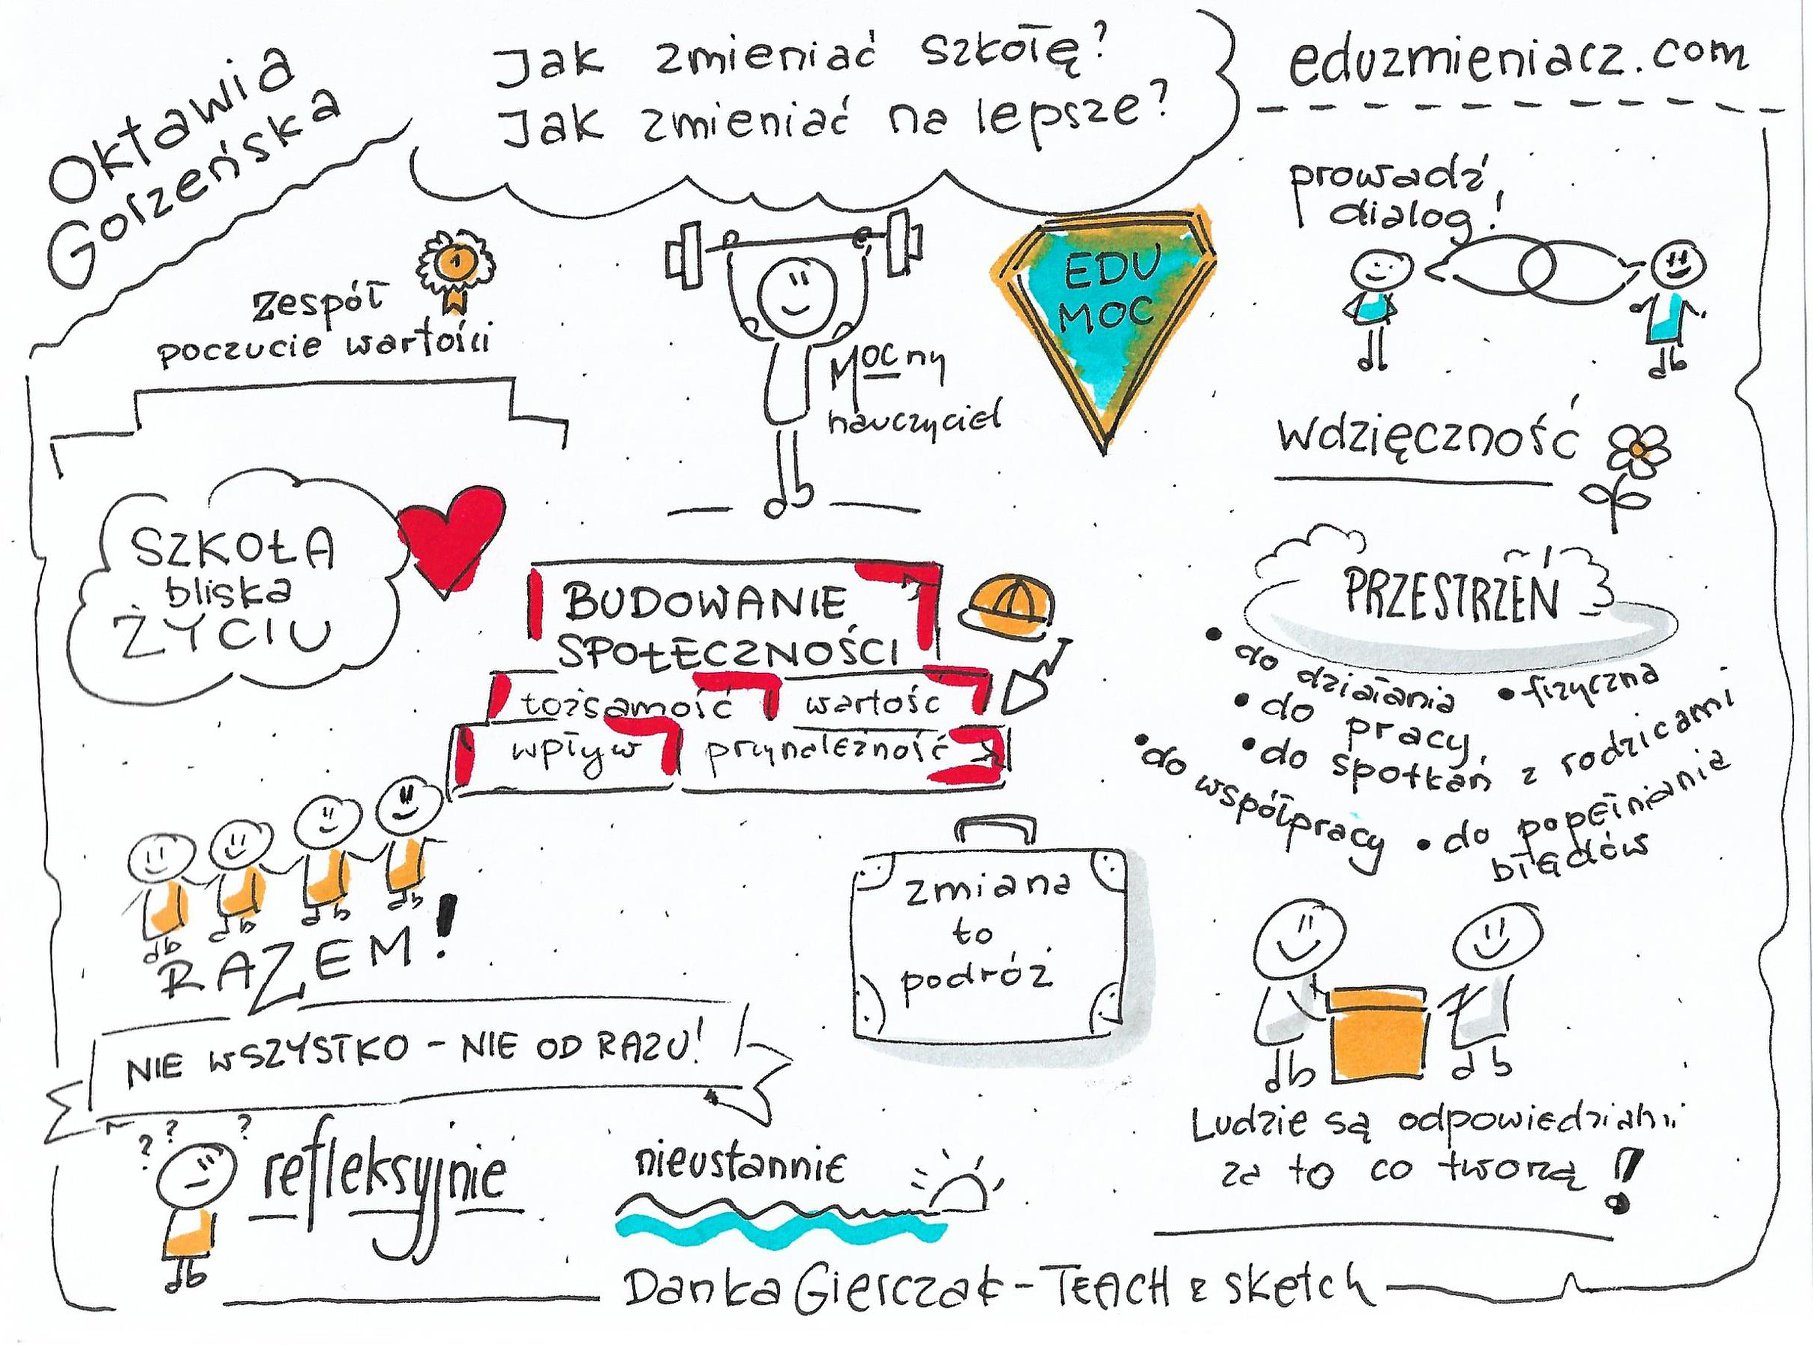 Oktawia
Gorzeńska
Jak zmieniać szkołę?
Jak zmieniać na lepsze?
eduzmieniacz.com
zespół
poczucie wartości
1
Mocny
nauczyciel
EDU
MOC
prowadź
dialog!
wdzięczność
SZKOŁA
bliska
ŻYCIU
BUDOWANIE
SPOŁECZNOŚCI
tożsamość wartość
wpływ przynależność
PRZESTRZEŃ
• do działania
• fizyczna
• do pracy
• do spotkań z rodzicami
• do współpracy
• do popełniania
błędów
RAZEM!
zmiana
to
podróż
NIE WSZYSTKO - NIE OD RAZU!
? ? ?
refleksyjnie
nieustannie
Ludzie są odpowiedzialni
za to co tworzą!
Danka Gierczak - TEACH & sketch